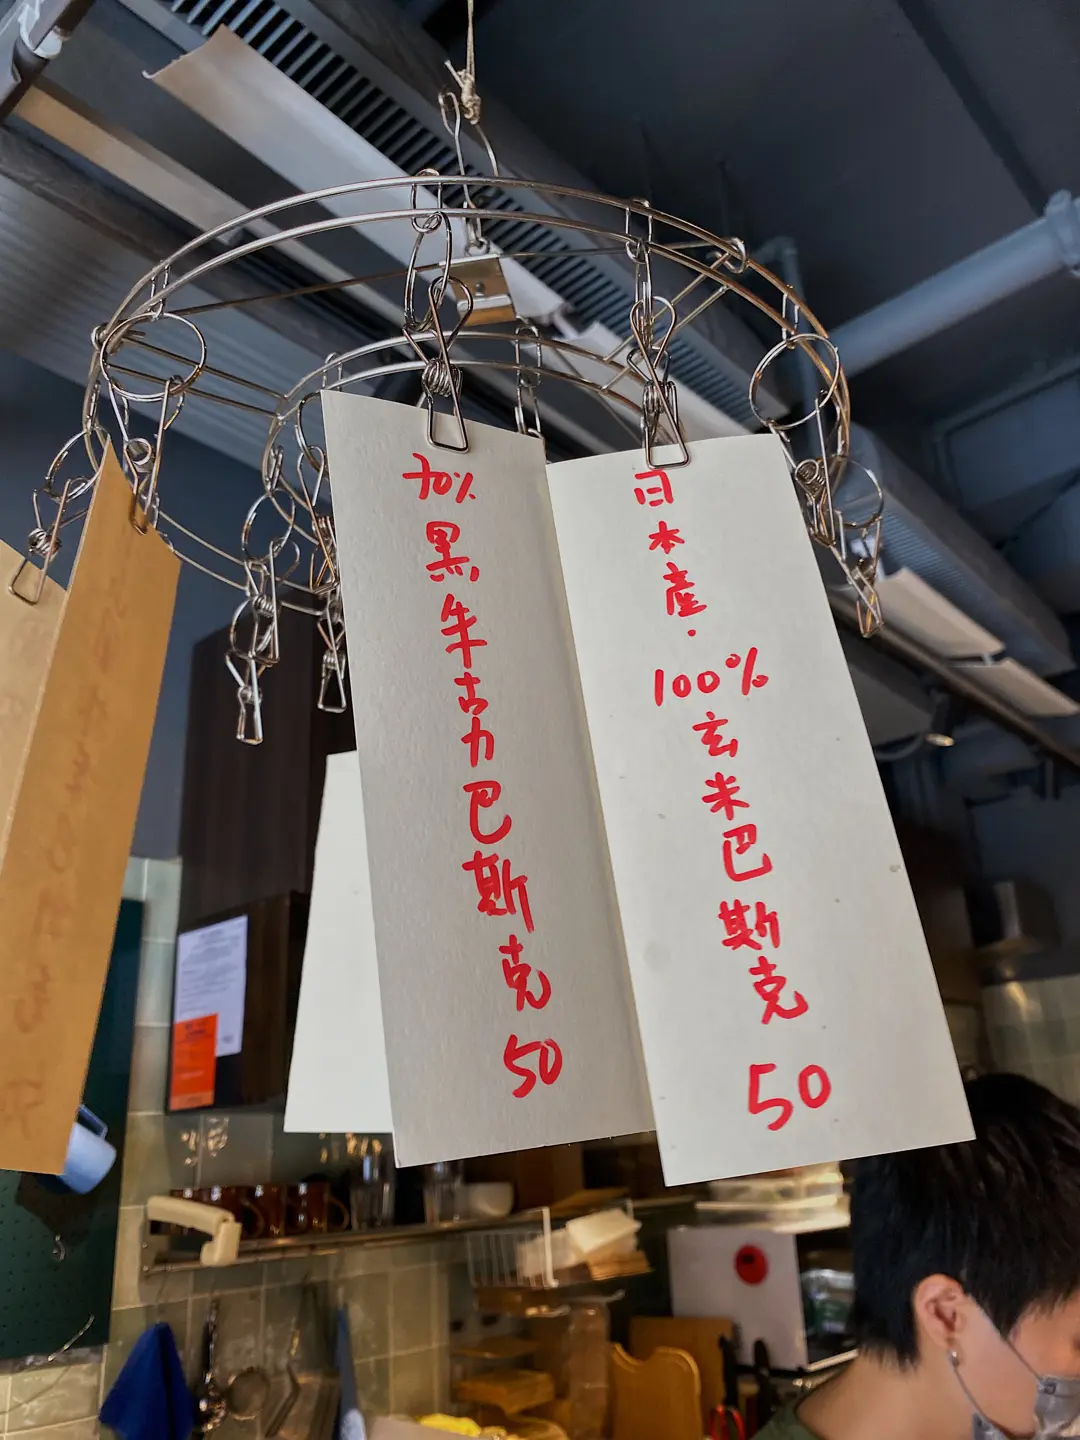 70%黑朱古力巴斯克50
日本產·100%玄米巴斯克50